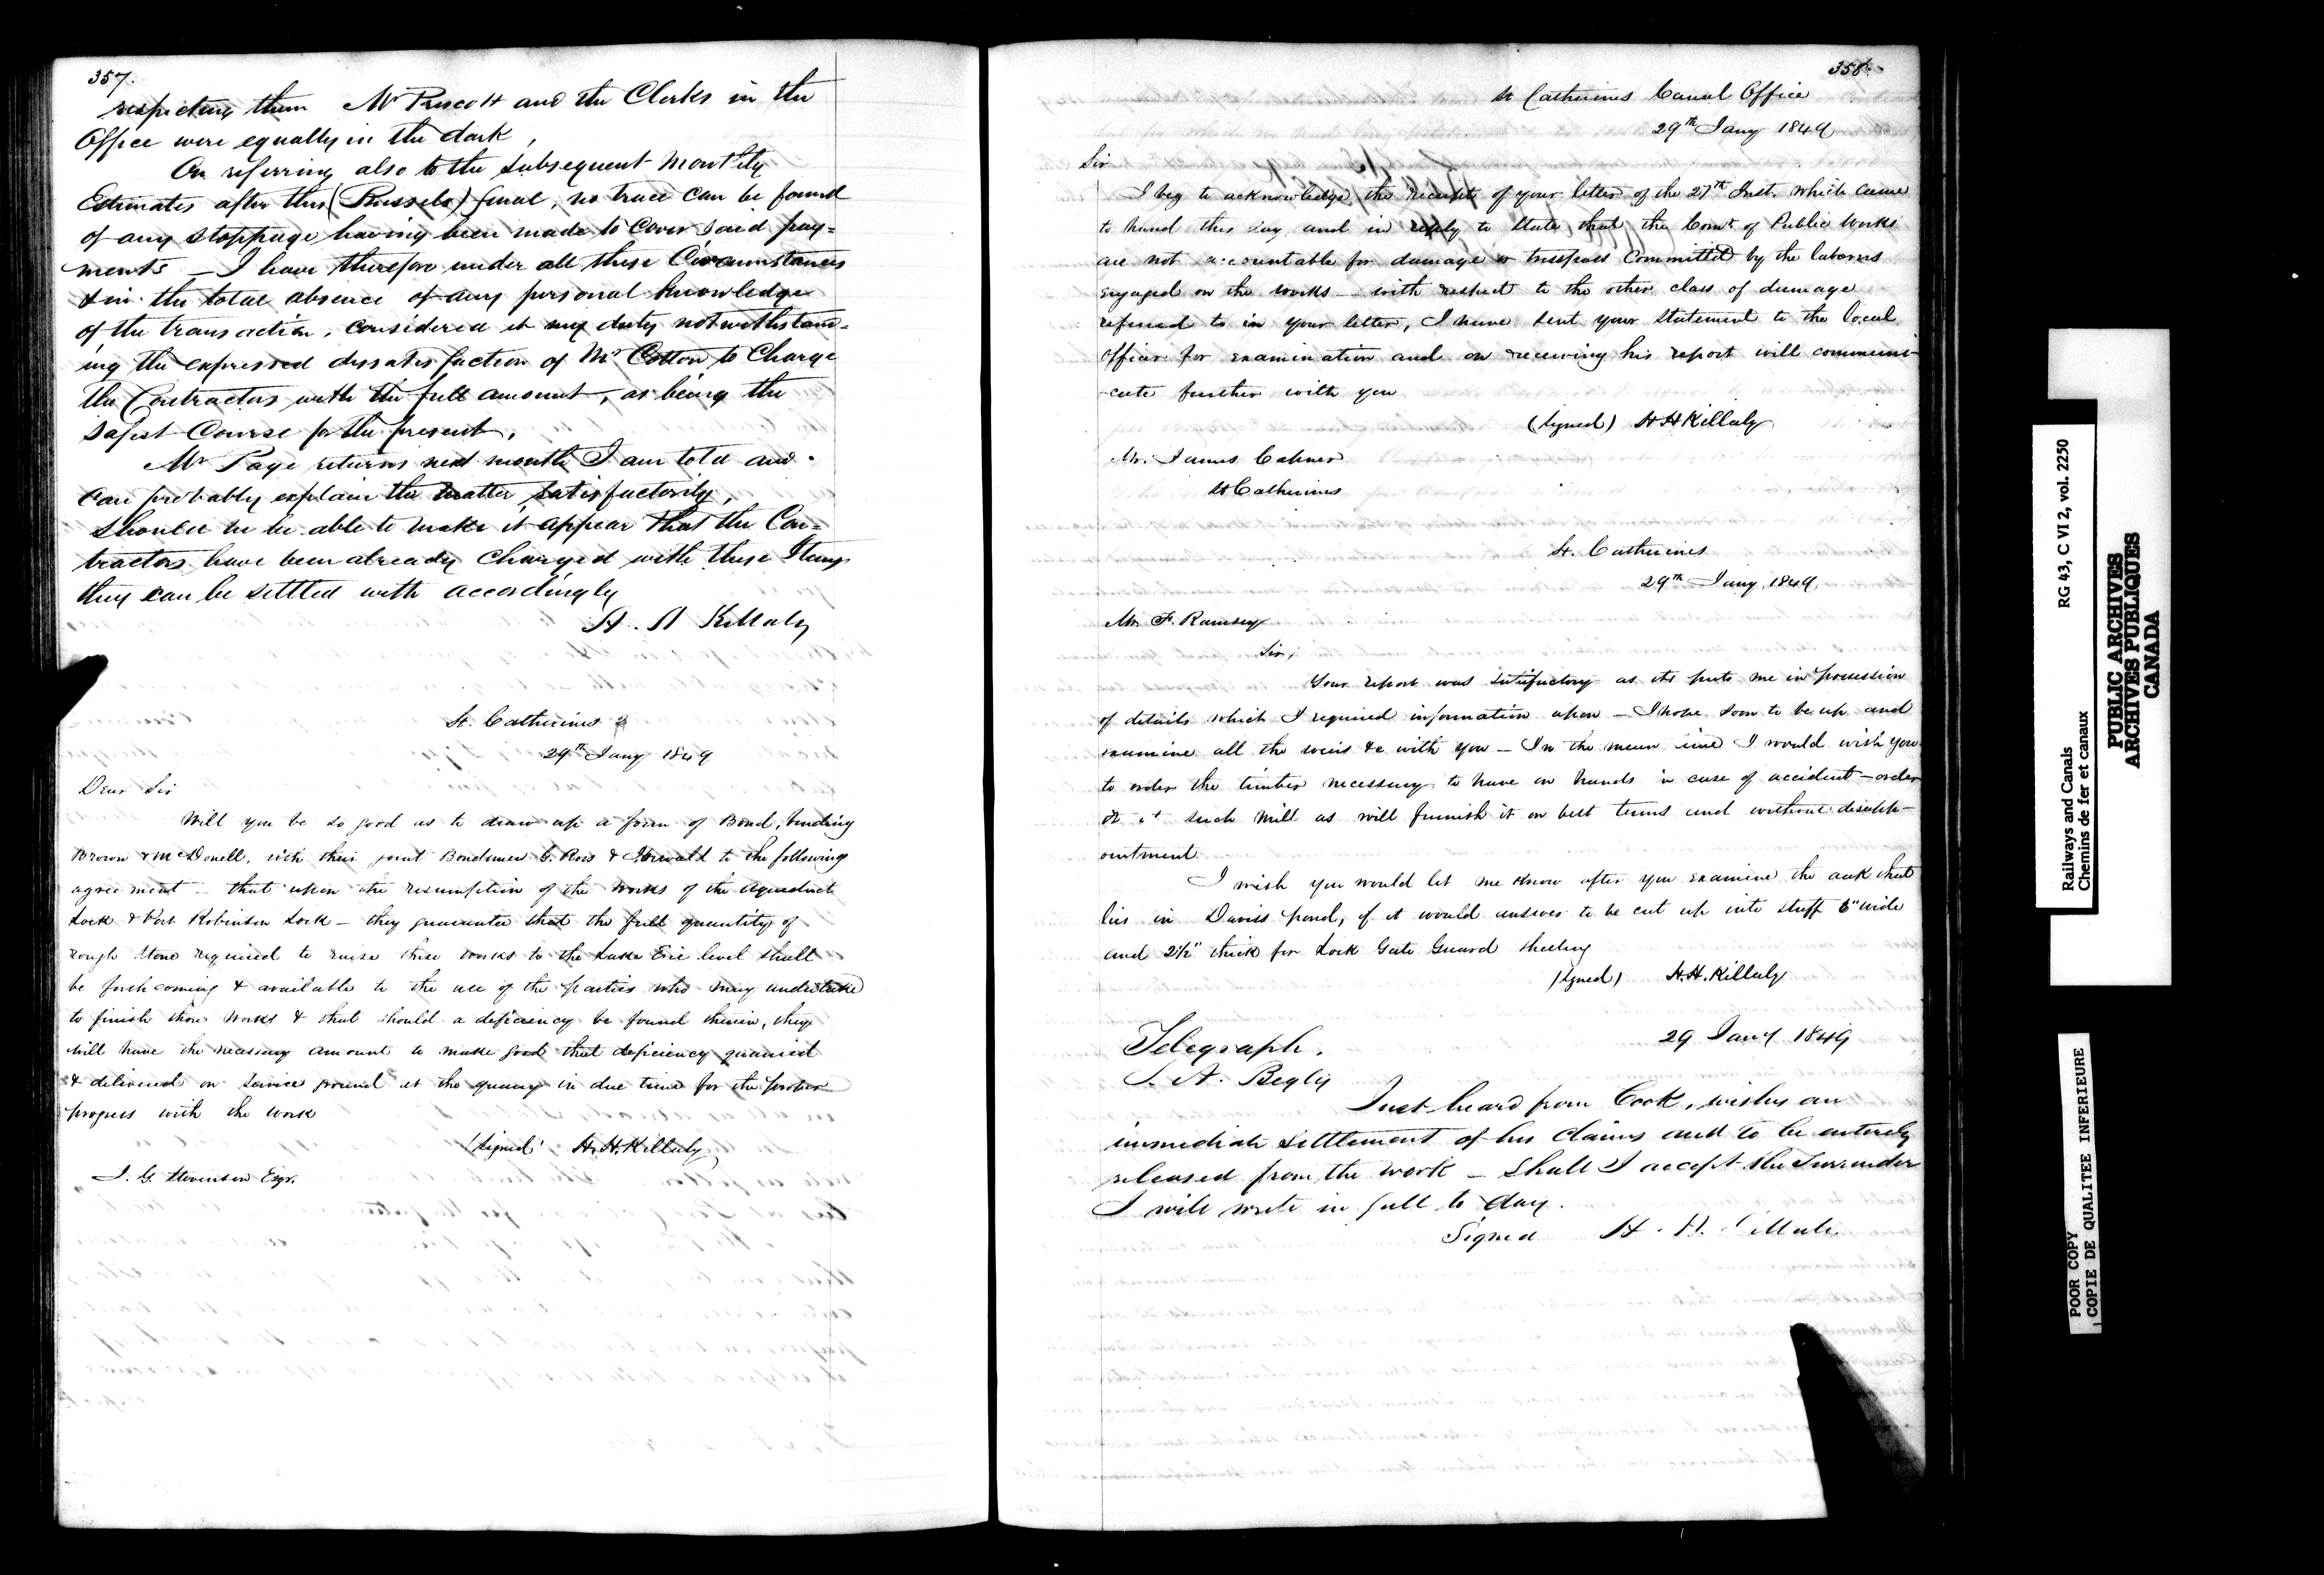 357.
respecting them Mr Prescott and the Clerks in the
Office were equally in the dark,
On referring also to the subsequent Monthly
Estimates after this (Russels) final, no trace can be found
of any stoppage having been made to cover said pay=
ments — I have therefore under all these Circumstances
& in the total absence of any personal knowledge
of the transaction, considered it my duty notwithstand=
ing the expressed dissatisfaction of Mr Cotton to Charge
the Contractors with the full amount, as being the
safest Course for the present,
Mr Page returns next month I am told and
can probably explain the matter satisfactorily,
should he be able to make it appear that the Con=
tractors have been already charged with these Items
they can be settled with accordingly
H. H Killaly
St. Catherines
29th Jany 1849
Dear Sir
Will you be so good as to draw up a form of Bond, binding
Brown & McDonell, with their joint Bondsmen G. Ross & to the following
agreement - that upon the resumption of the works of the Aqueduct
Lock & Port Robinson Lock — they guarantee that the full quantity of
rough stone required to raise these works to the Lake Erie level shall
be forthcoming & available to the use of the parties who may undertake
to finish those works & that should a deficiency be found therein, they
will have the necessary amount to make good that deficiency quarried
& delivered on service ground at the quarry in due time for the proper
progress with the work
(signed) H. H. Killaly
J. G. Stevenson Esqr.
358.
St Catherines Canal Office
29th Jany 1849
Sir
I beg to acknowledge the receipt of your letter of the 27th Inst. which came
to hand this day and in reply to state that the Comrs of Public Works
are not accountable for damage or trespass Committed by the laborers
engaged on the works — with respect to the other class of damage
referred to in your letter, I have sent your statement to the local
Officer for examination and on receiving his report will communi-
-cate further with you
(signed) H H Killaly
Mr. James
St Catherines
St. Catherines
29th Jany 1849
Mr. F. Ramsey
Sir,
Your report was satisfactory as it puts me in possession
of details which I required information upon — I hope soon to be up and
examine all the weirs &c with you — In the mean time I would wish you
to order the timber necessary to have on hands in case of accident — order
it at such Mill as will furnish it on best terms and without disapp-
ointment
I wish you would let me know after you examine the oak that
lies in Davis's pond, if it would answer to be cut up into stuff 6" wide
and 2½" thick for Lock Gate Guard sheeting
(signed) H. H. Killaly
29 Jany 1849
Telegraph.
T. A. Begly
Just heard from Cook, wishes an
immediate settlement of his claims and to be entirely
released from the work — shall I accept the surrender
I will write in full to day.
Signed H. H. Killaly
Railways and Canals RG 43, C VI 2, vol. 2250
Chemins de fer et canaux
PUBLIC ARCHIVES
ARCHIVES PUBLIQUES
CANADA
POOR COPY
COPIE DE QUALITEE INFERIEURE